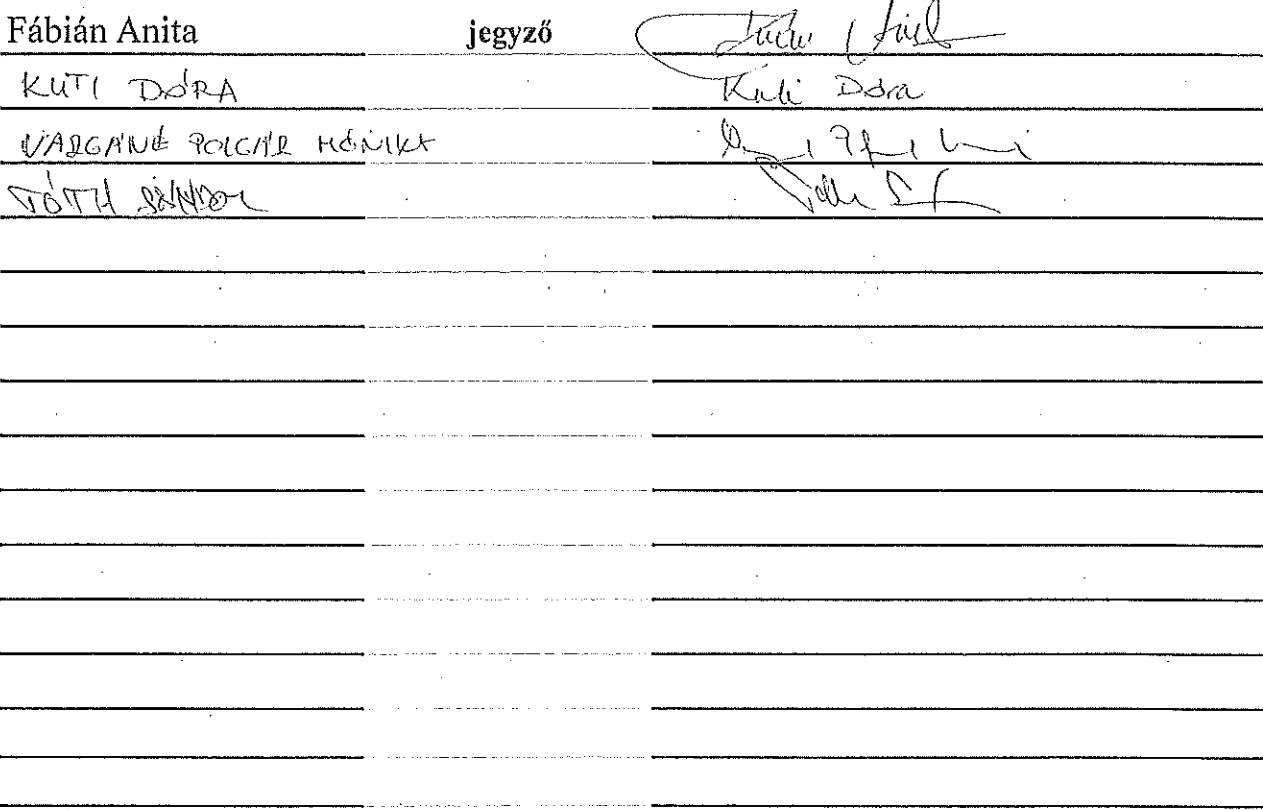 Fábián Anita jegyző
KUTI DÓRA Kuti Dóra
VARGÁNÉ POLGÁR MÓNIKA
TÓTH SÁNDOR Tóth